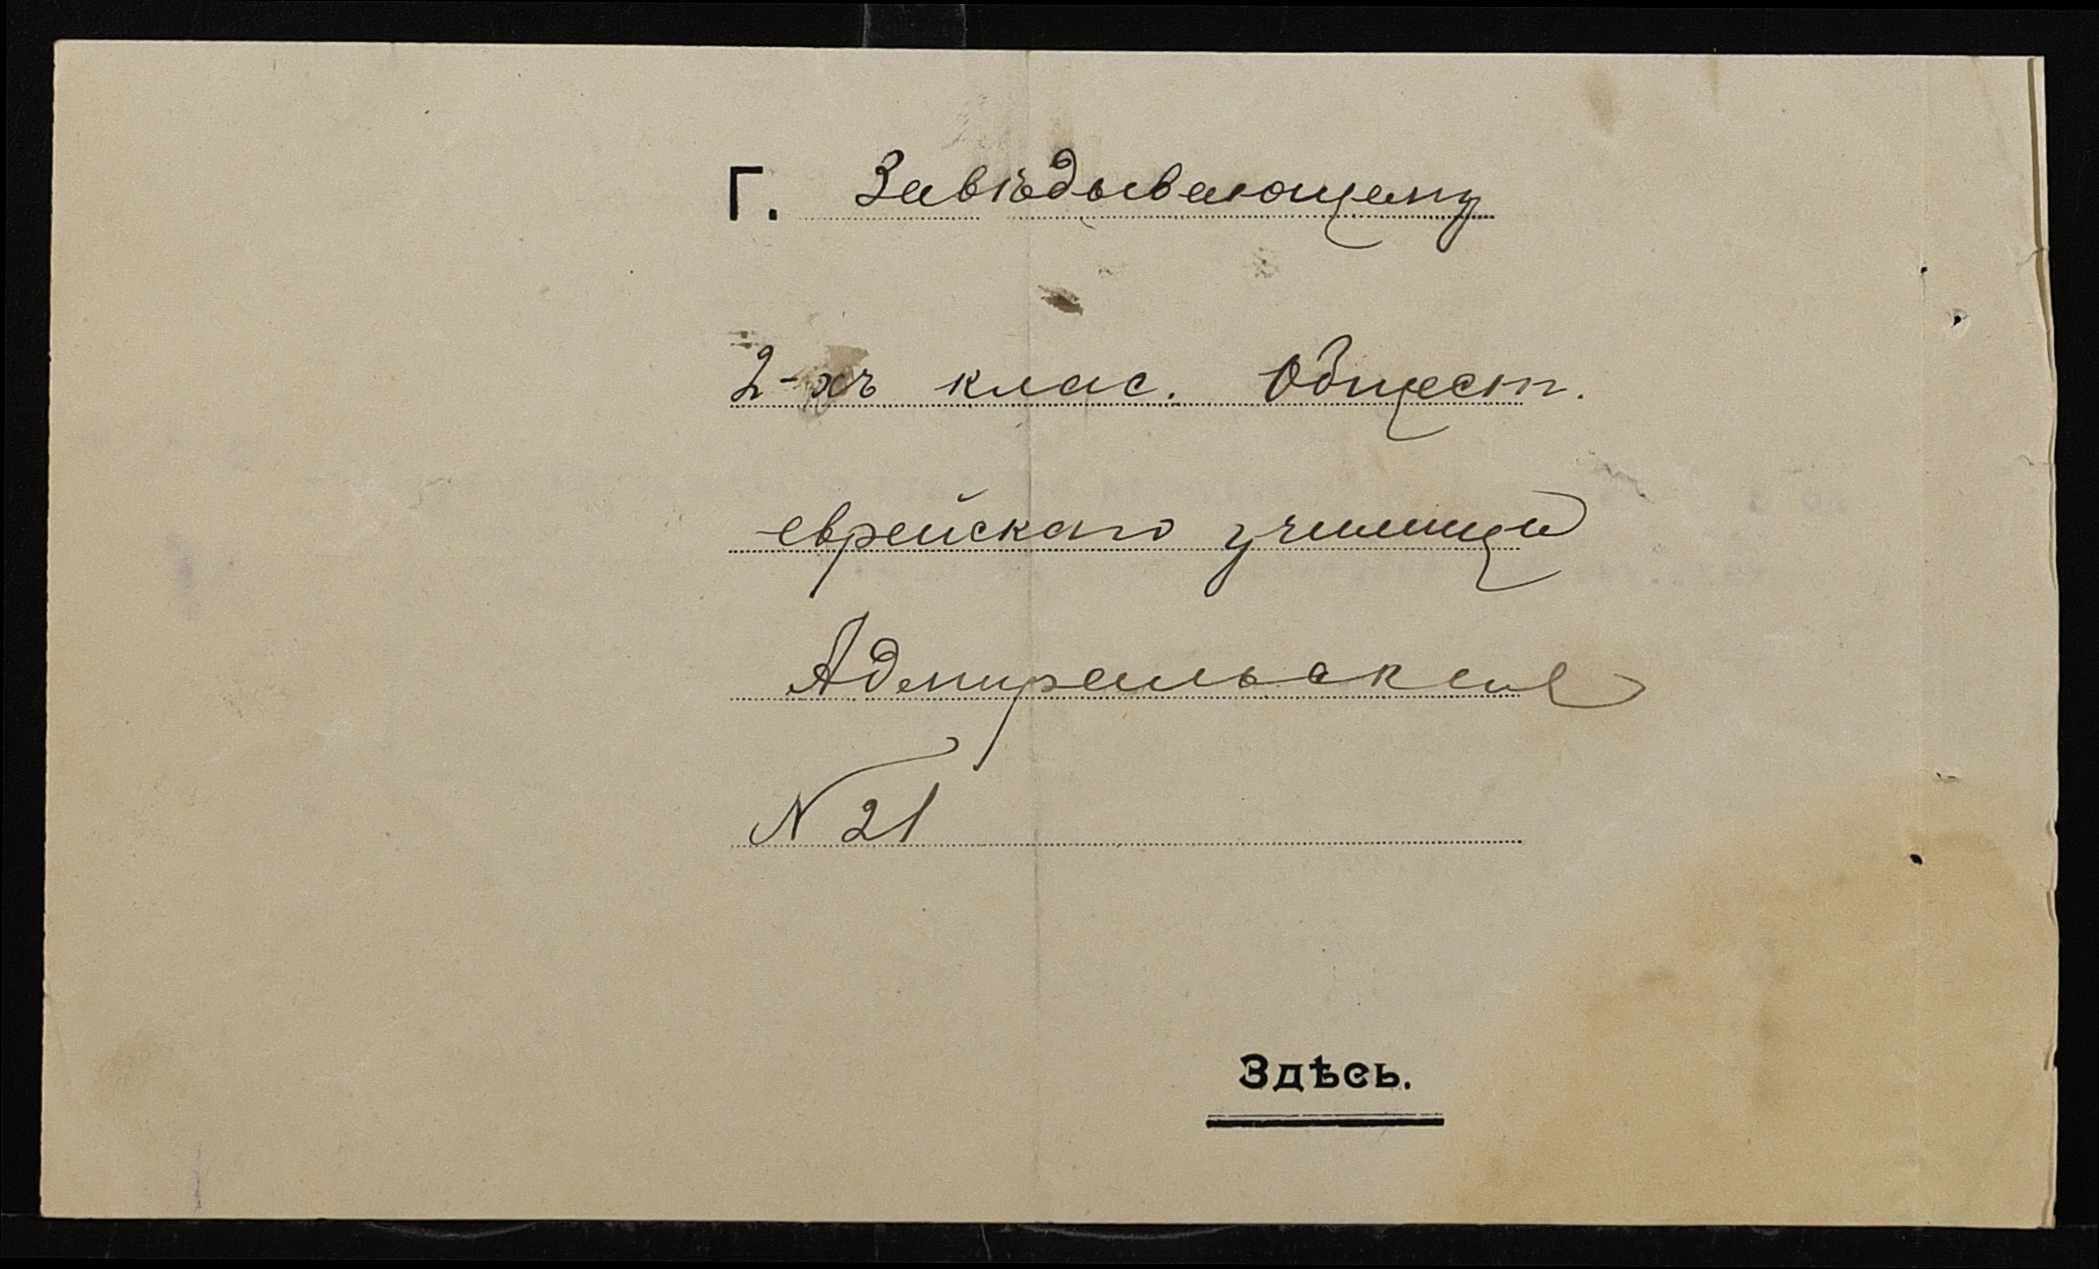 Г. Завѣдывающему
2-хъ клас. Общест.
еврейскаго училища
Адмиральская
№ 21
Здѣсь.